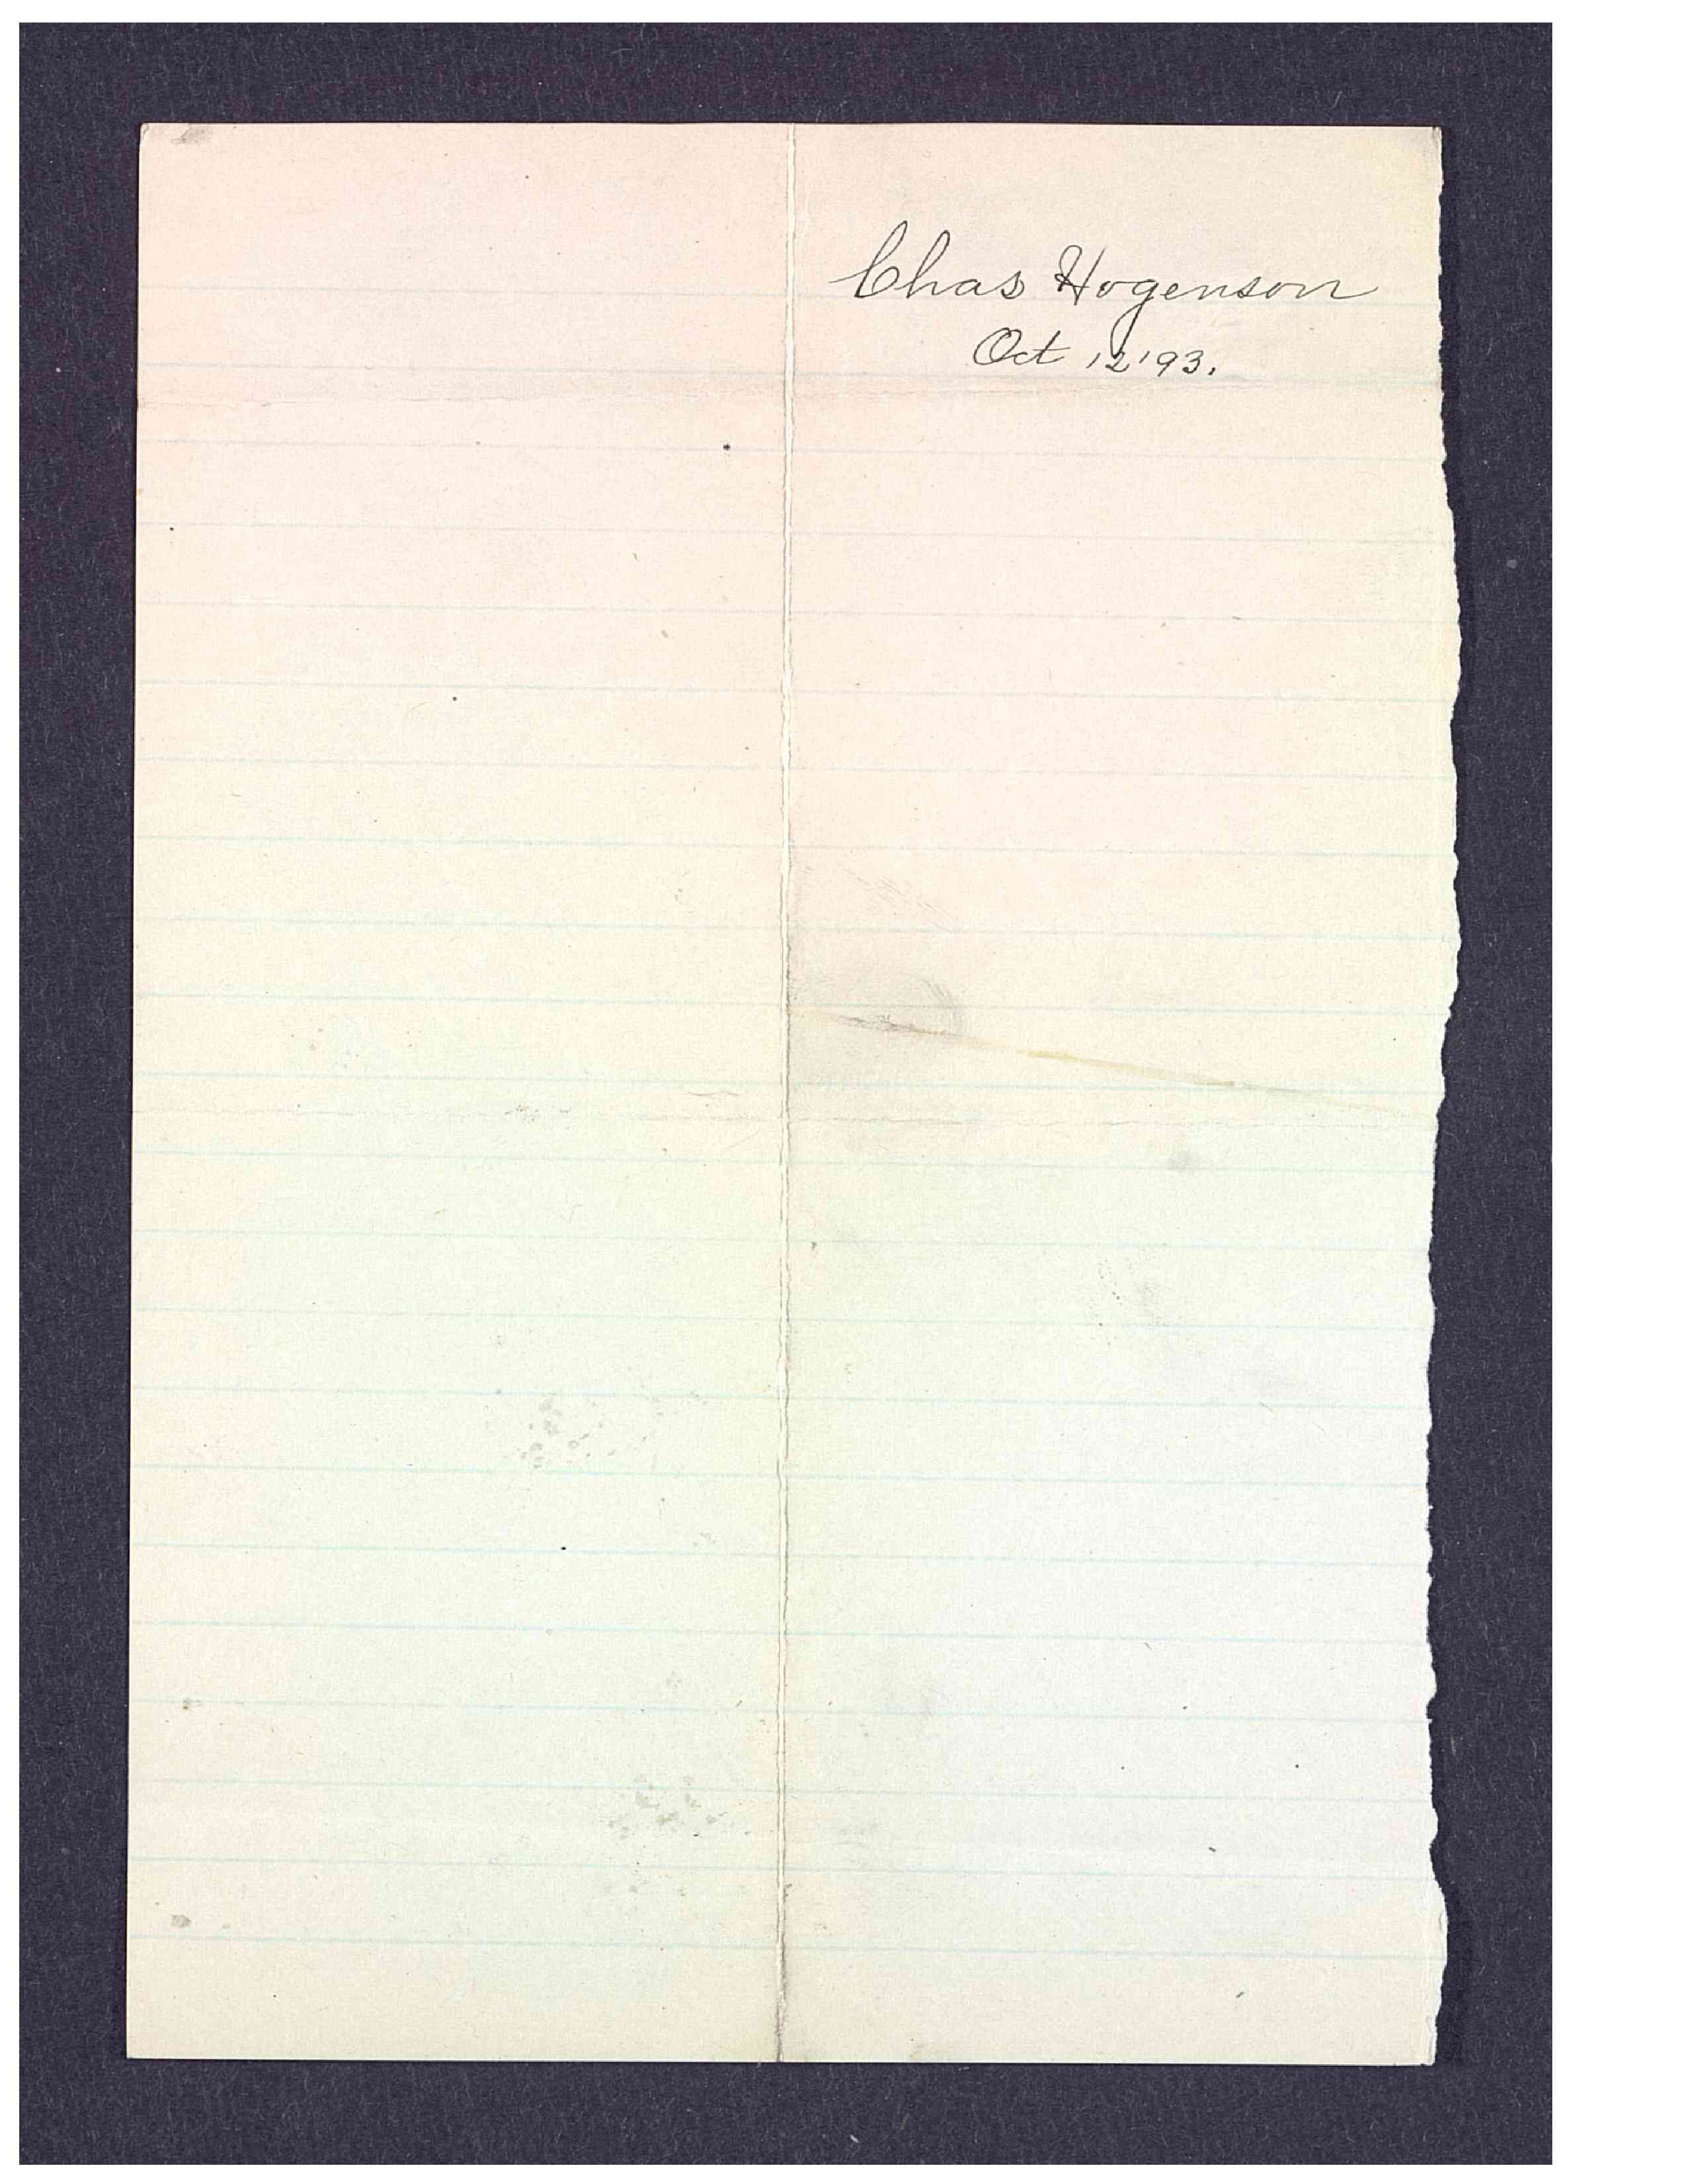 Chas Hogenson
Oct 12 '93.